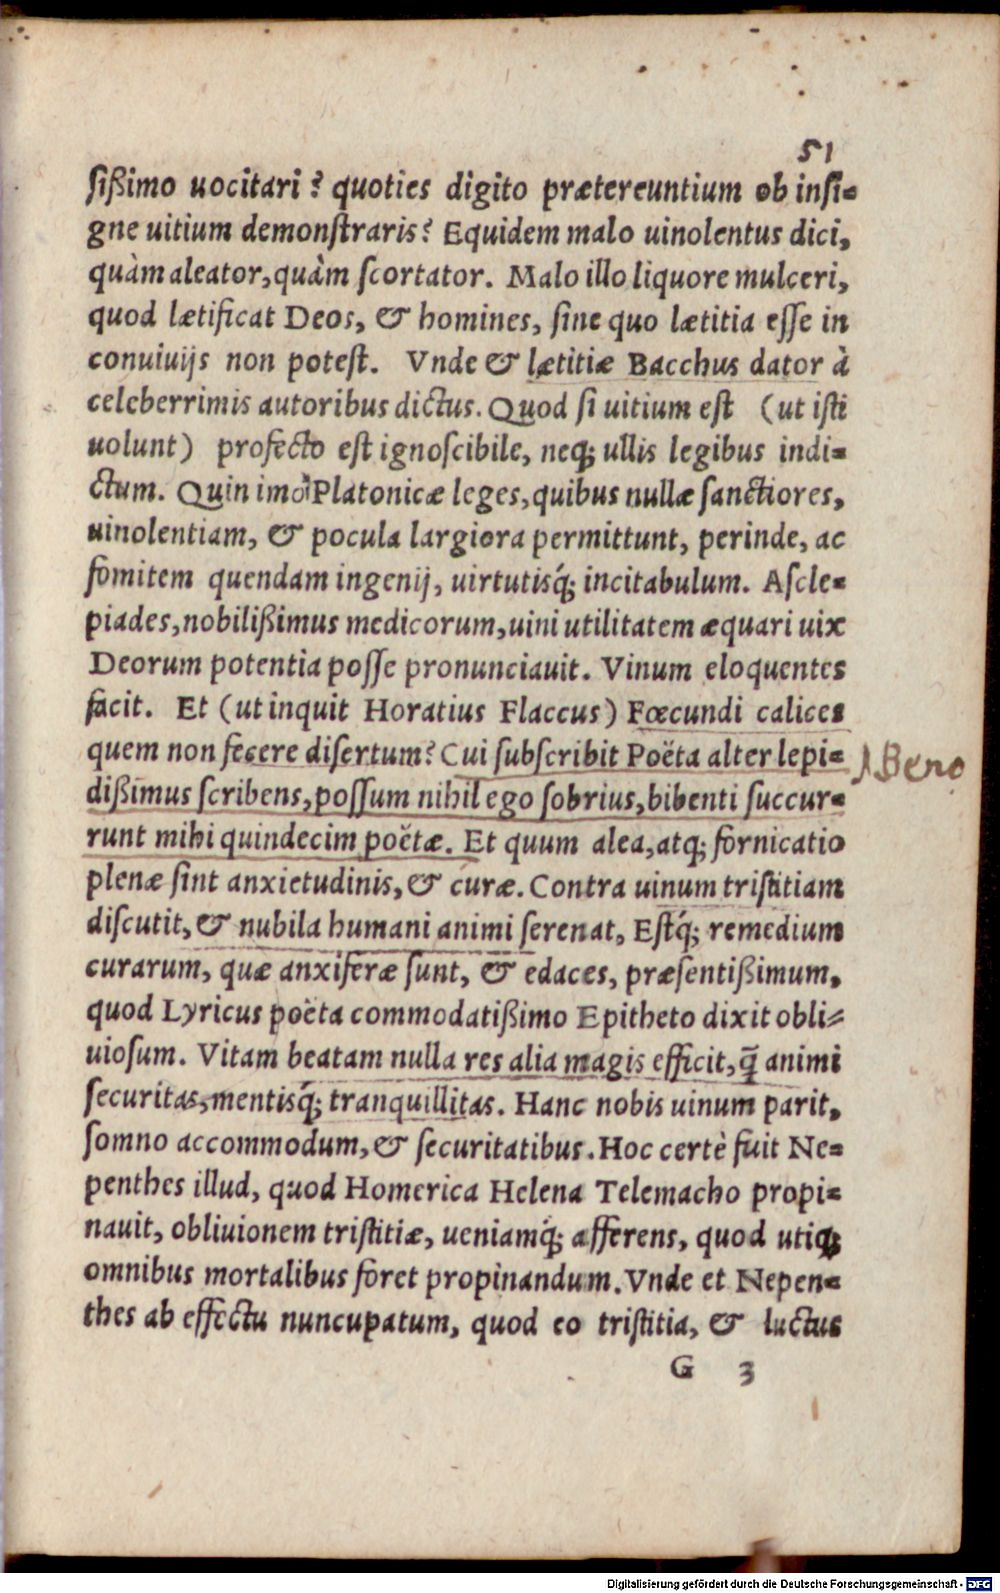 51
ſißimo uocitari? quoties digito prætereuntium ob inſi-
gne uitium demonſtraris? Equidem malo uinolentus dici,
quàm aleator, quàm ſcortator. Malo illo liquore mulceri,
quod lætificat Deos, & homines, ſine quo lætitia eſſe in
conuiuijs non poteſt. Vnde & lætitiæ Bacchus dator à
celeberrimis autoribus dictus. Quod ſi uitium eſt (ut iſti
uolunt) profecto eſt ignoſcibile, neq́; ullis legibus indi-
ctum. Quin imò Platonicæ leges, quibus nullæ ſanctiores,
uinolentiam, & pocula largiora permittunt, perinde, ac
fomitem quendam ingenij, uirtutisq́; incitabulum. Aſcle-
piades, nobilißimus medicorum, uini utilitatem æquari uix
Deorum potentia poſſe pronunciauit. Vinum eloquentes
facit. Et (ut inquit Horatius Flaccus) Fœcundi calices
quem non fecere diſertum? Cui ſubſcribit Poëta alter lepi-
dißimus ſcribens, poſſum nihil ego ſobrius, bibenti ſuccur-
runt mihi quindecim poëtæ. Et quum alea, atq; fornicatio
plenæ ſint anxietudinis, & curæ. Contra uinum triſtitiam
diſcutit, & nubila humani animi ſerenat, Eſtq́; remedium
curarum, quæ anxiferæ ſunt, & edaces, præſentißimum,
quod Lyricus poëta commodatißimo Epitheto dixit obli-
uioſum. Vitam beatam nulla res alia magis efficit, q̃ animi
ſecuritas, mentisq́; tranquillitas. Hanc nobis uinum parit,
ſomno accommodum, & ſecuritatibus. Hoc certè fuit Ne-
penthes illud, quod Homerica Helena Telemacho propi-
nauit, obliuionem triſtitiæ, ueniamq́; afferens, quod utiq;
omnibus mortalibus foret propinandum. Vnde et Nepen-
thes ab effectu nuncupatum, quod eo triſtitia, & luctus
G 3
Digitalisierung gefördert durch die Deutsche Forschungsgemeinschaft - DFG